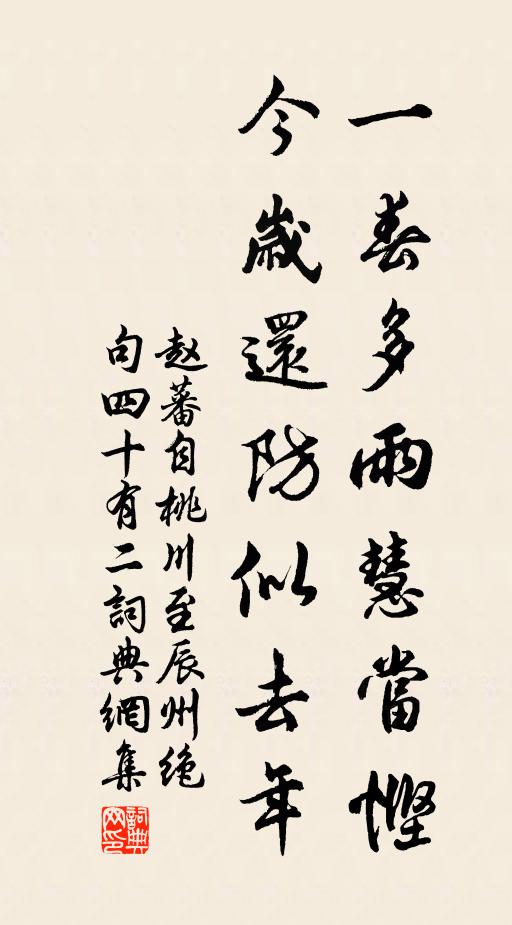 一春多雨慧當慳
今歲還防似去年
赵蕃自桃川至辰州绝
句四十有二詞典網集
詞典网印